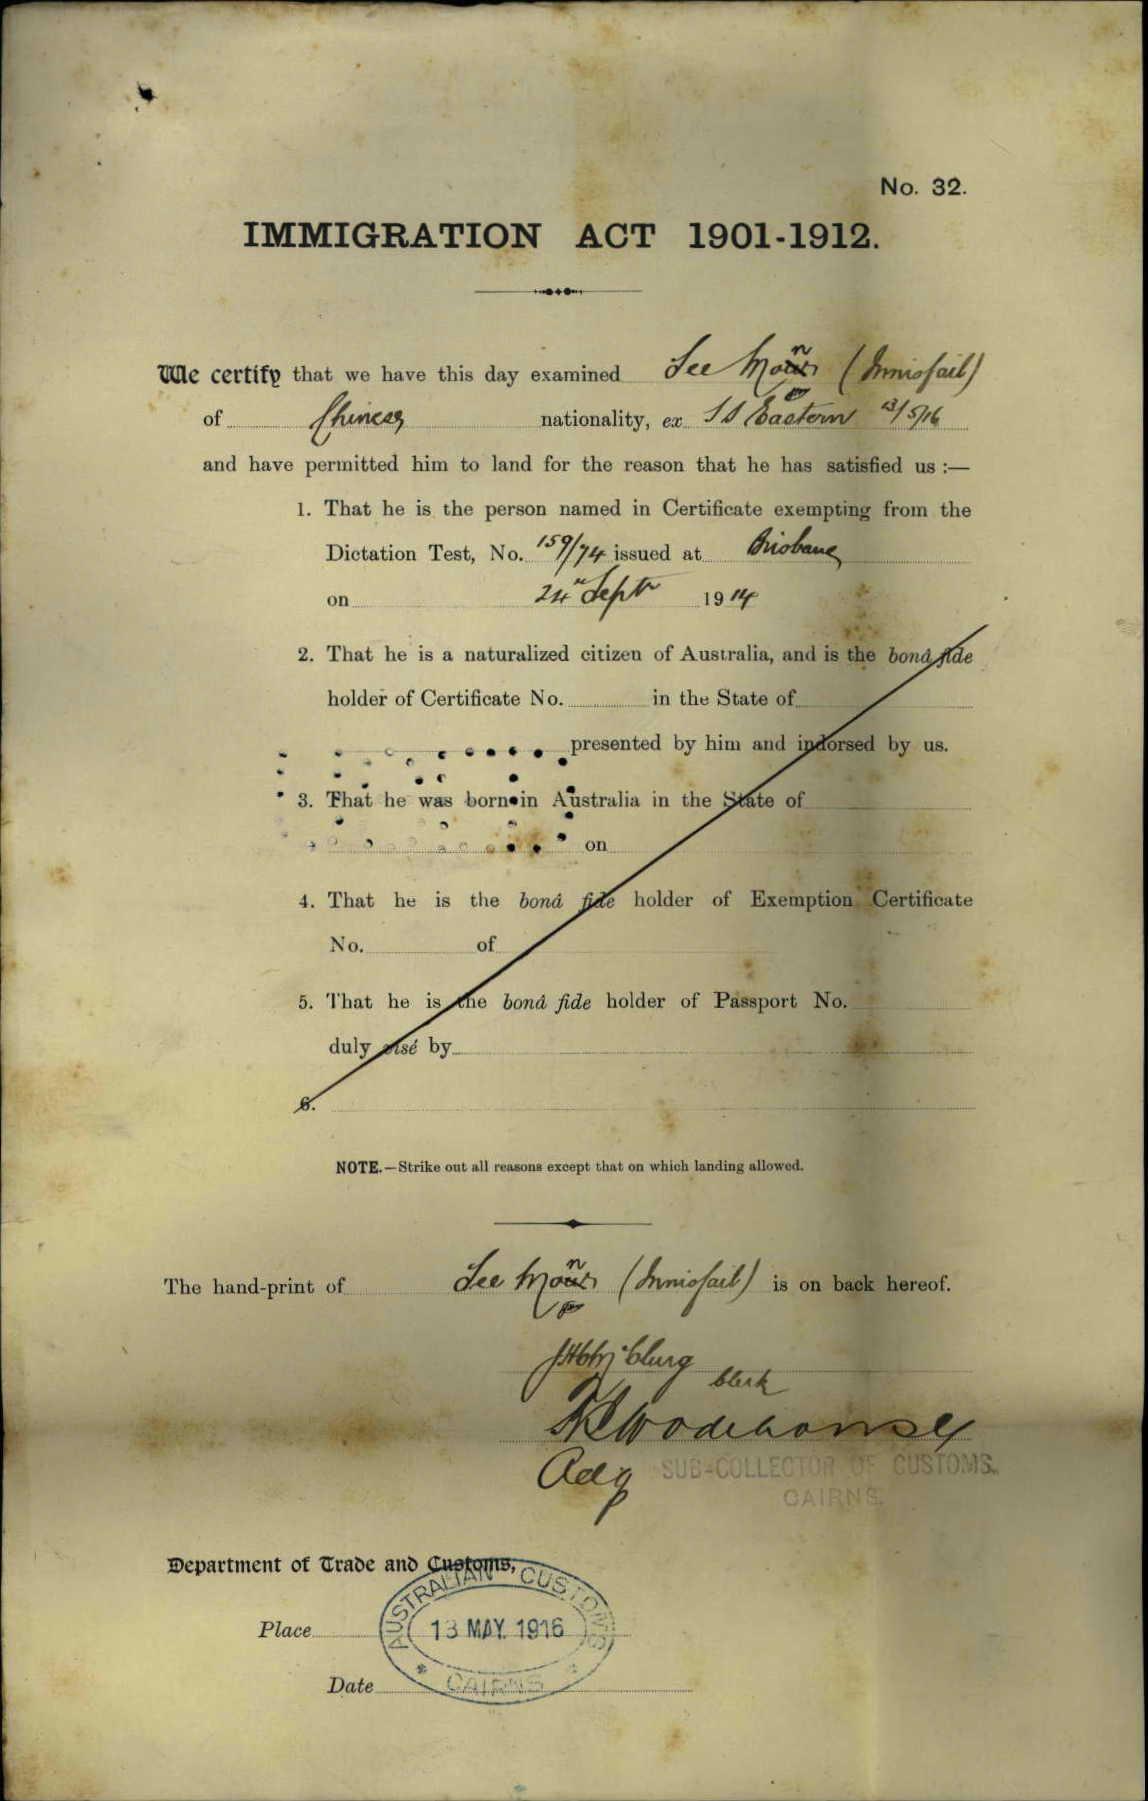 No. 32.
IMMIGRATION ACT 1901-1912.
We certify that we have this day examined See Mon (Innisfail)
of Chinese nationality, ex S S Eastern 13/5/16
and have permitted him to land for the reason that he has satisfied us :—
1. That he is the person named in Certificate exempting from the
Dictation Test, No. 159/74 issued at Brisbane
on 24th Septr 1914
2. That he is a naturalized citizen of Australia, and is the bonâ fide
holder of Certificate No. in the State of
presented by him and indorsed by us.
3. That he was born in Australia in the State of
on
4. That he is the bonâ fide holder of Exemption Certificate
No. of
5. That he is the bonâ fide holder of Passport No.
duly visé by
6.
NOTE.—Strike out all reasons except that on which landing allowed.
The hand-print of See Mon (Innisfail) is on back hereof.
Clerk
Wodehouse
Actg SUB-COLLECTOR OF CUSTOMS.
CAIRNS.
Department of Trade and Customs,
AUSTRALIAN CUSTOMS
Place 13 MAY. 1916
CAIRNS
Date